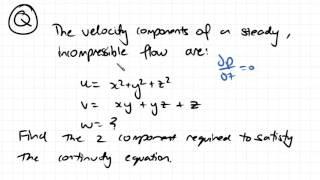 Q
The velocity components of a steady,
incompressible flow are:
∂ρ/∂t = 0
u = x²+y²+z²
v = xy + yz + z
w = ?
Find the z component required to satisfy
the continuity equation.